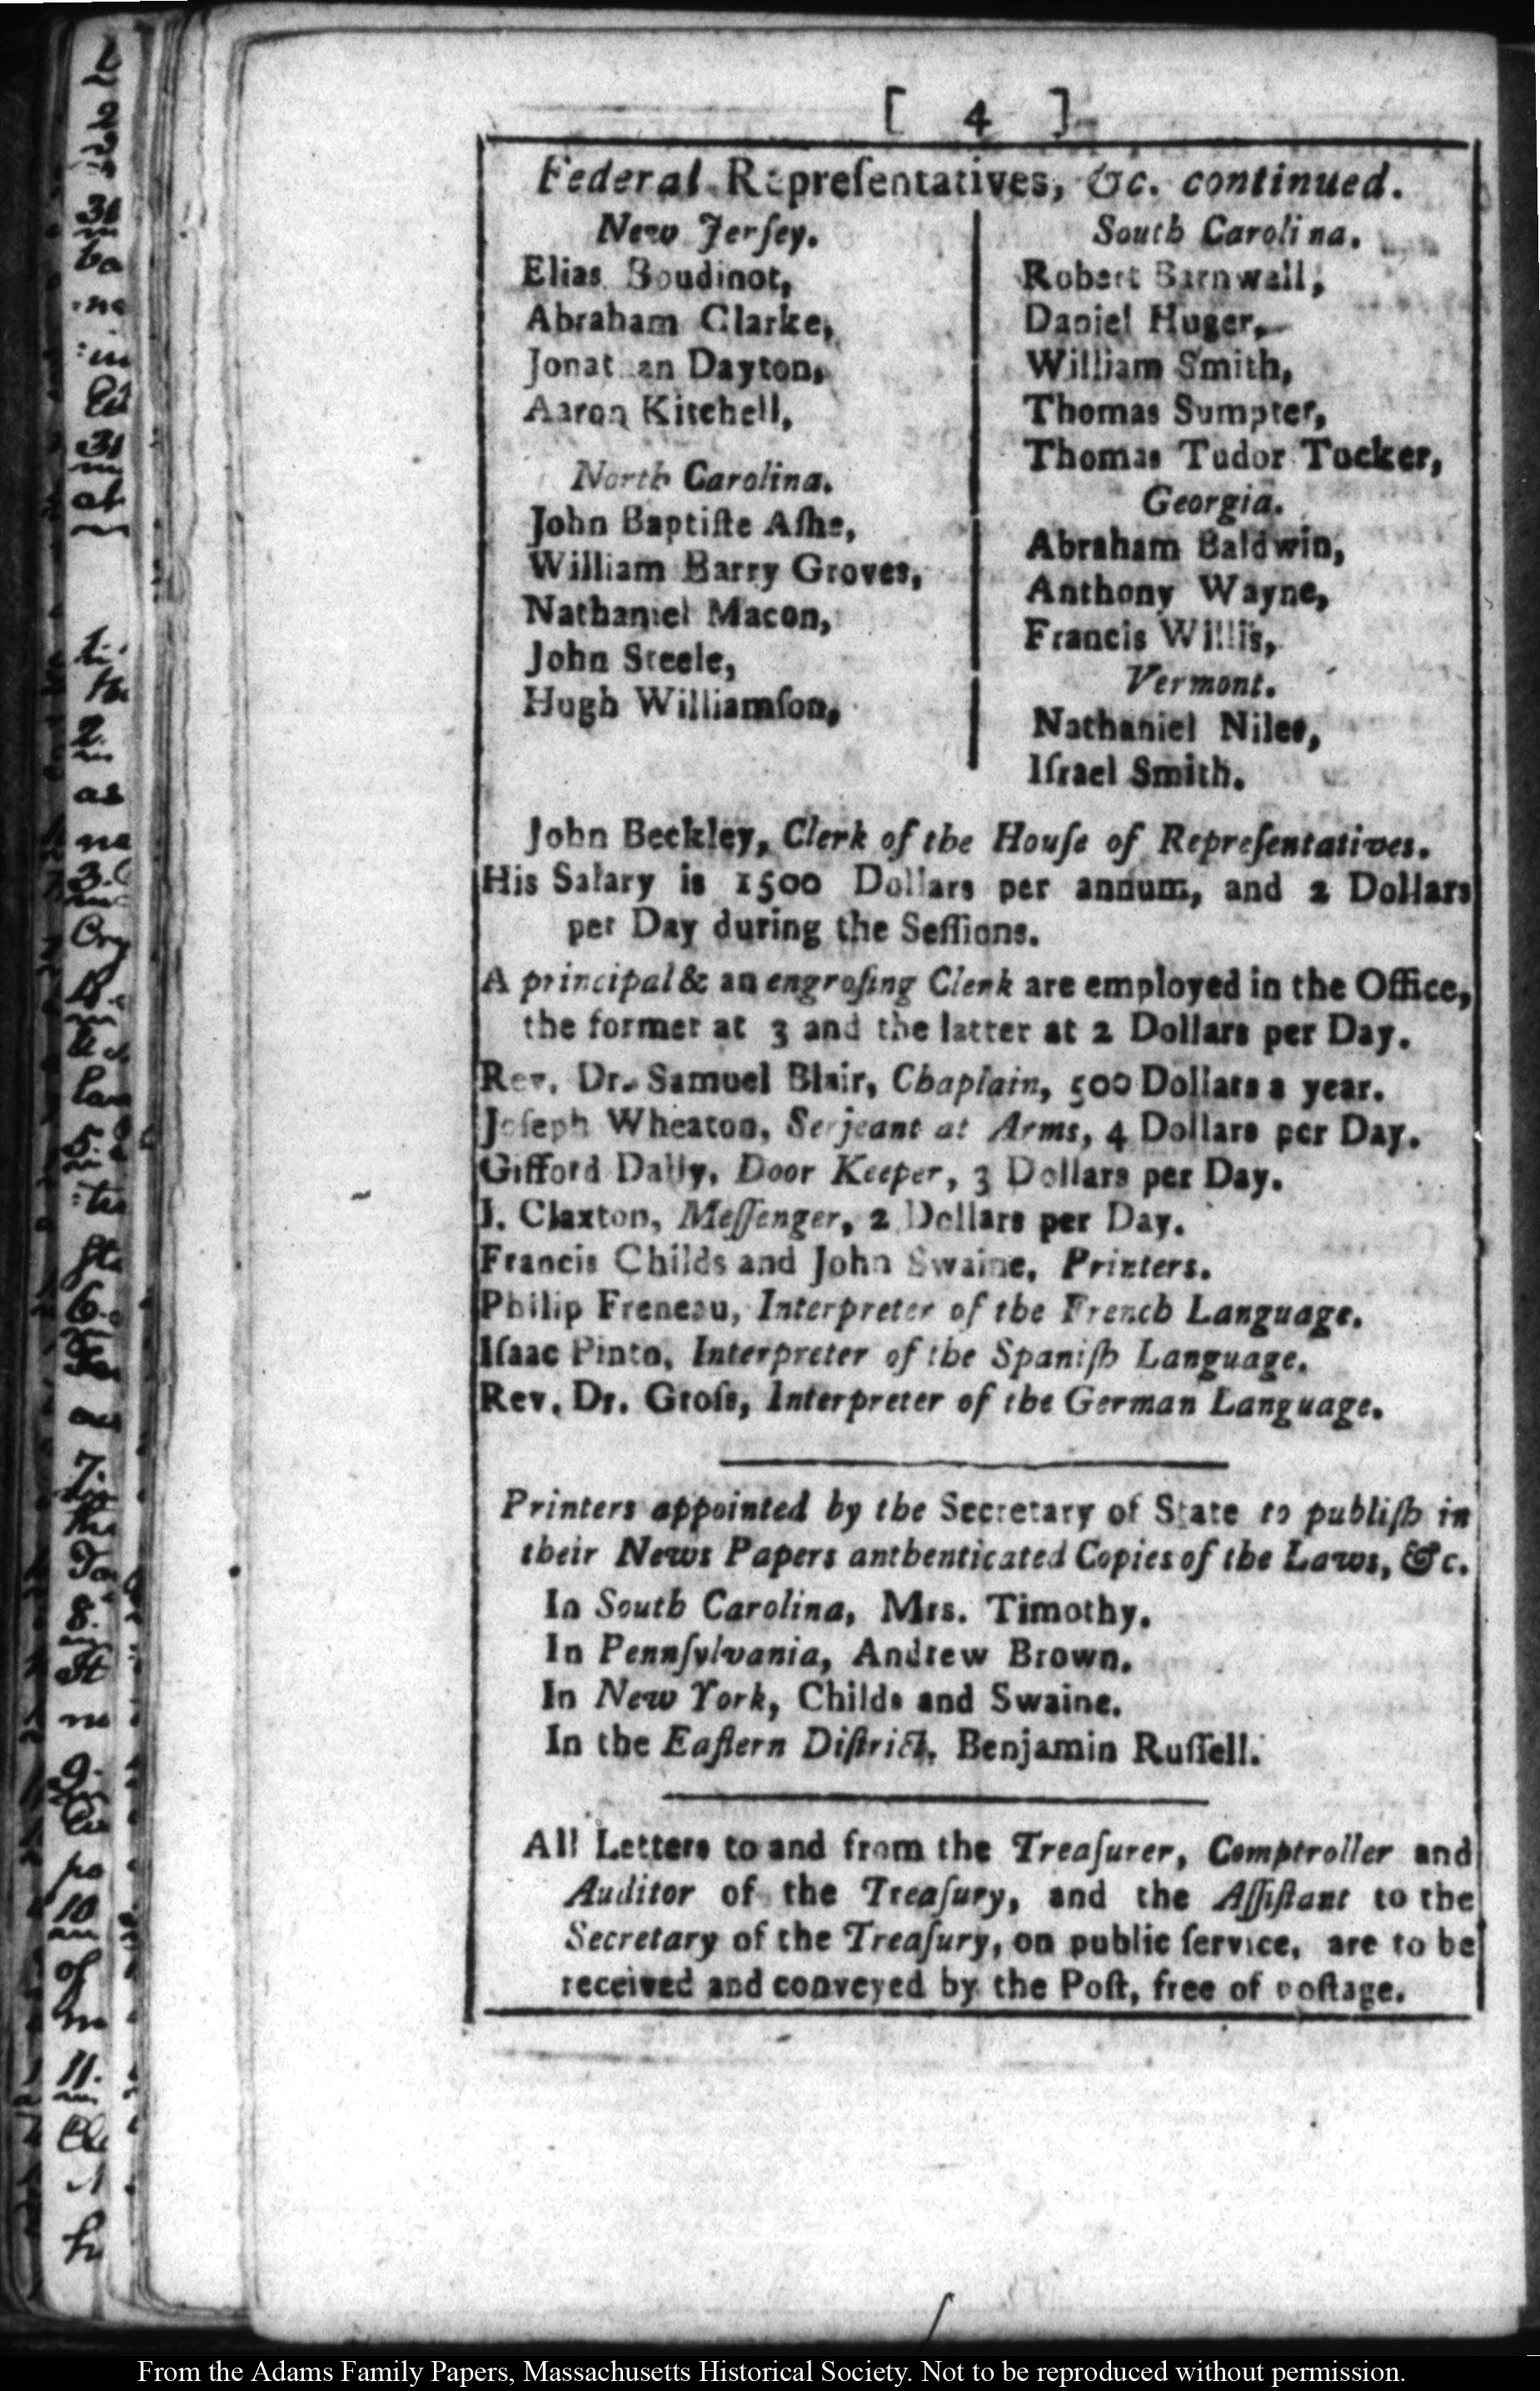 [ 4 ]
Federal Repreſentatives, &c. continued.
New Jerſey.
Elias Boudinot,
Abraham Clarke,
Jonathan Dayton,
Aaron Kitchell,
North Carolina.
John Baptiſte Aſhe,
William Barry Groves,
Nathaniel Macon,
John Steele,
Hugh Williamſon,
South Carolina.
Robert Barnwall,
Daniel Huger,
William Smith,
Thomas Sumpter,
Thomas Tudor Tucker,
Georgia.
Abraham Baldwin,
Anthony Wayne,
Francis Willis,
Vermont.
Nathaniel Niles,
Iſrael Smith.
John Beckley, Clerk of the Houſe of Repreſentatives.
His Salary is 1500 Dollars per annum, and 2 Dollars
per Day during the Seſſions.
A principal & an engroſing Clerk are employed in the Office,
the former at 3 and the latter at 2 Dollars per Day.
Rev. Dr. Samuel Blair, Chaplain, 500 Dollars a year.
Joſeph Wheaton, Serjeant at Arms, 4 Dollars per Day.
Gifford Dally, Door Keeper, 3 Dollars per Day.
J. Claxton, Meſſenger, 2 Dollars per Day.
Francis Childs and John Swaine, Printers.
Philip Freneau, Interpreter of the French Language.
Iſaac Pinto, Interpreter of the Spaniſh Language.
Rev. Dr. Groſs, Interpreter of the German Language.
Printers appointed by the Secretary of State to publiſh in
their News Papers anthenticated Copies of the Laws, &c.
In South Carolina, Mrs. Timothy.
In Pennſylvania, Andrew Brown.
In New York, Childs and Swaine.
In the Eaſtern Diſtrict, Benjamin Ruſſell.
All Letters to and from the Treaſurer, Comptroller and
Auditor of the Treaſury, and the Aſſiſtant to the
Secretary of the Treaſury, on public ſervice, are to be
received and conveyed by the Poſt, free of poſtage.
From the Adams Family Papers, Massachusetts Historical Society. Not to be reproduced without permission.